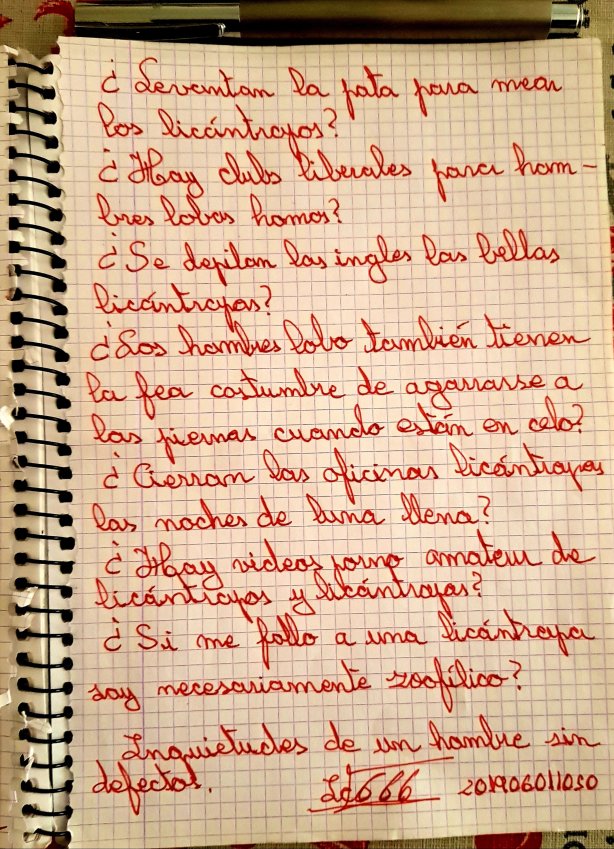 ¿Levantan la pata para mear
los licántropos?
¿Hay clubs liberales para hom-
bres lobos homos?
¿Se depilan las ingles las bellas
licántropas?
¿Los hombres lobo también tienen
la fea costumbre de agarrarse a
las piernas cuando están en celo?
¿Cierran las oficinas licántropas
las noches de luna llena?
¿Hay videos porno amateur de
licántropos y licántropas?
¿Si me follo a una licántropa
soy necesariamente zoofílico?
Inquietudes de un hombre sin
defectos.
666 201906011050